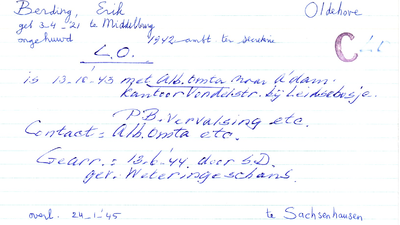 Berding, Erik Oldehove
geb 3-4-21 te Middelburg
ongehuwd 1942 ambt. ter secretarie
L.O. C
is 13-10-'43 met Alb. Omta naar A'dam.
Kantoor Vondelstr. bij Leidsebosje.
P.B. Vervalsing etc.
Contact = Alb. Omta etc.
Gearr. = 13-6-'44 door S.D.
gev. Weteringschans.
overl. 24-1-'45 te Sachsenhausen